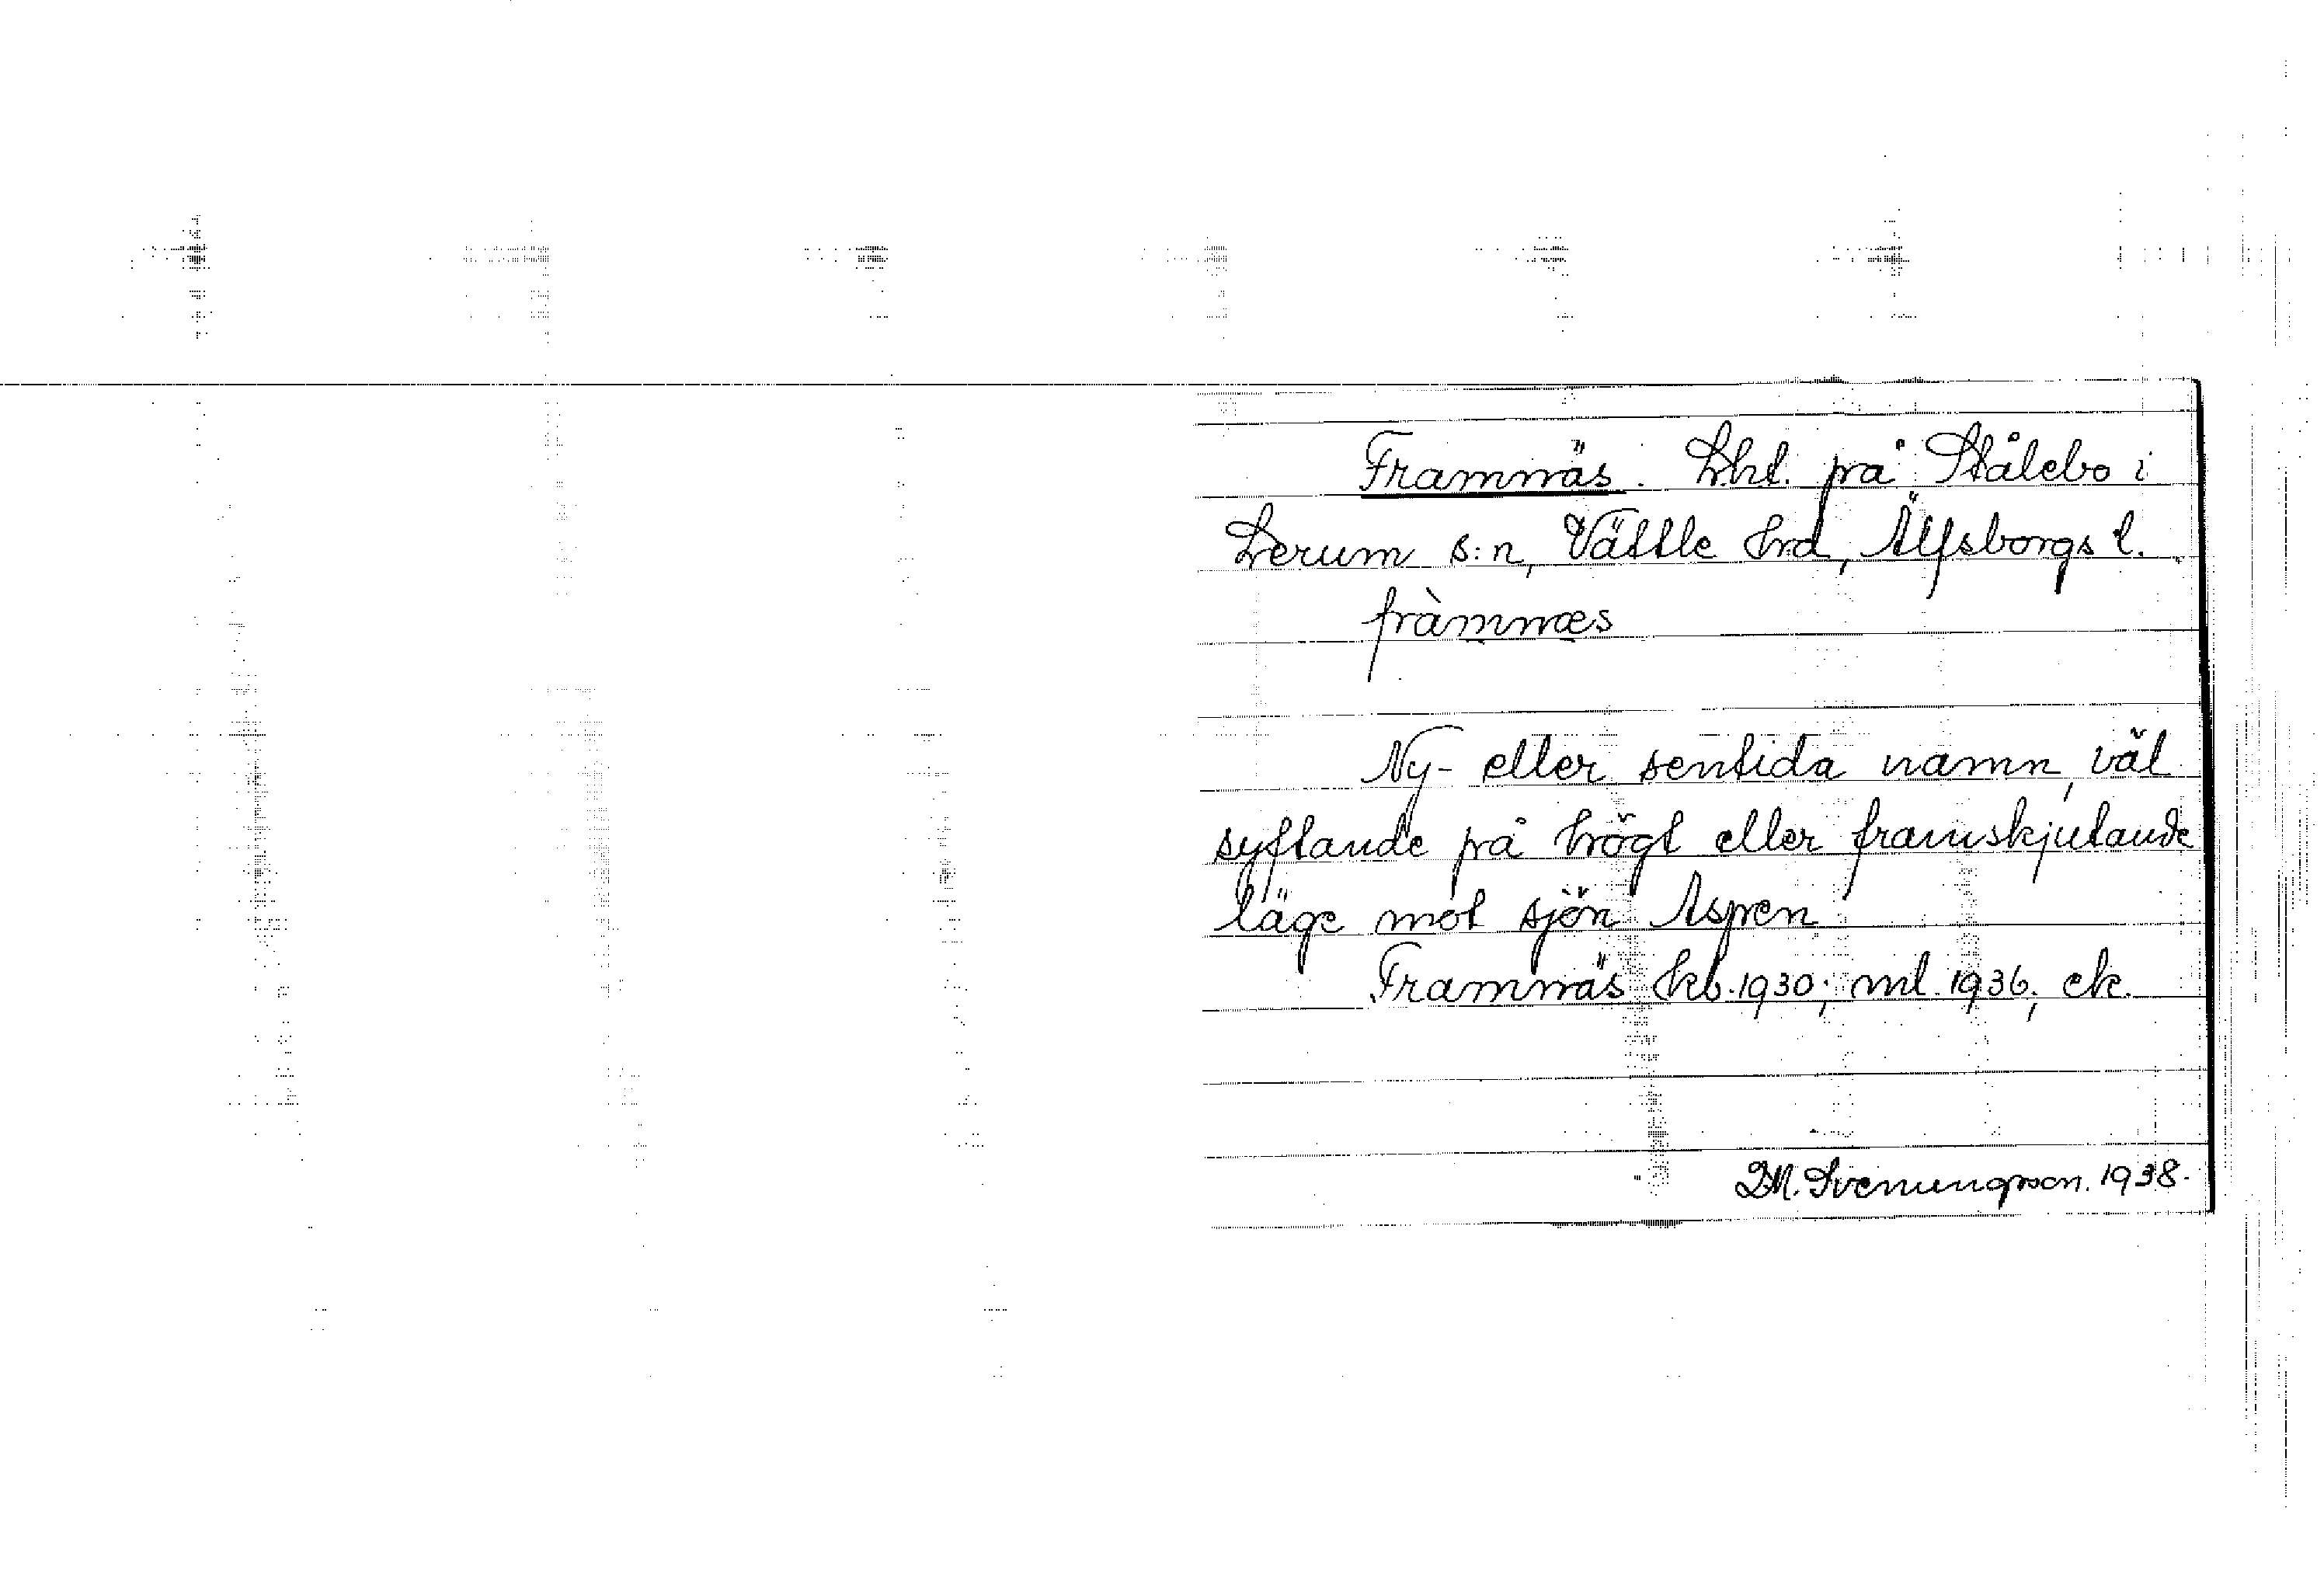 Framnäs. Lht. på Stålebo i
Lerum s:n, Vättle hrd, Älfsborgs l.
fràmnæs
Ny- eller sentida namn, väl
syftande på högt eller framskjutande
läge mot sjön Aspen
Framnäs hb. 1930; ml. 1936; ek.
D.M. Svenungsson. 1938.